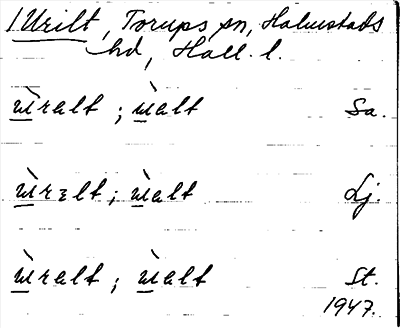 1 Urilt, Torups sn, Halmstads
hd, Hall. l.
ẁralt ; ẁalt Sa.
ẁrɛlt ; ẁalt Lj.
ẁralt ; ẁalt St.
1947.